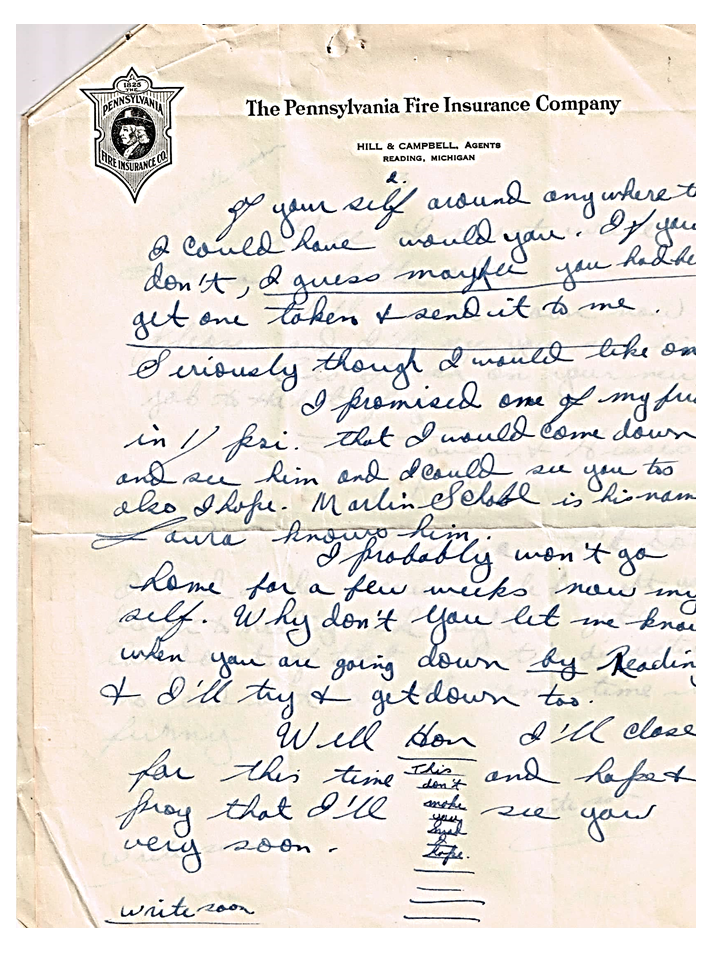 1825
THE
PENNSYLVANIA
FIRE INSURANCE CO.
The Pennsylvania Fire Insurance Company
HILL & CAMPBELL, AGENTS
READING, MICHIGAN
2.
of your self around anywhere t
I could have would you. If you
don't, I guess mayber you had be
get one taken & send it to me.
Seriously though I would like on
I promised one of my fri
in that I would come down
and see him and I could see you too
also I hope. Marlin is his nam
Laura knows him.
I probably won't go
home for a few weeks now my
self. Why don't you let me know
when you are going down by Reading
& I'll try & get down too.
Well Hon I'll close
for this time and hope &
pray that I'll see you
very soon.
This
don't
make
you
mad
I
hope.
write soon